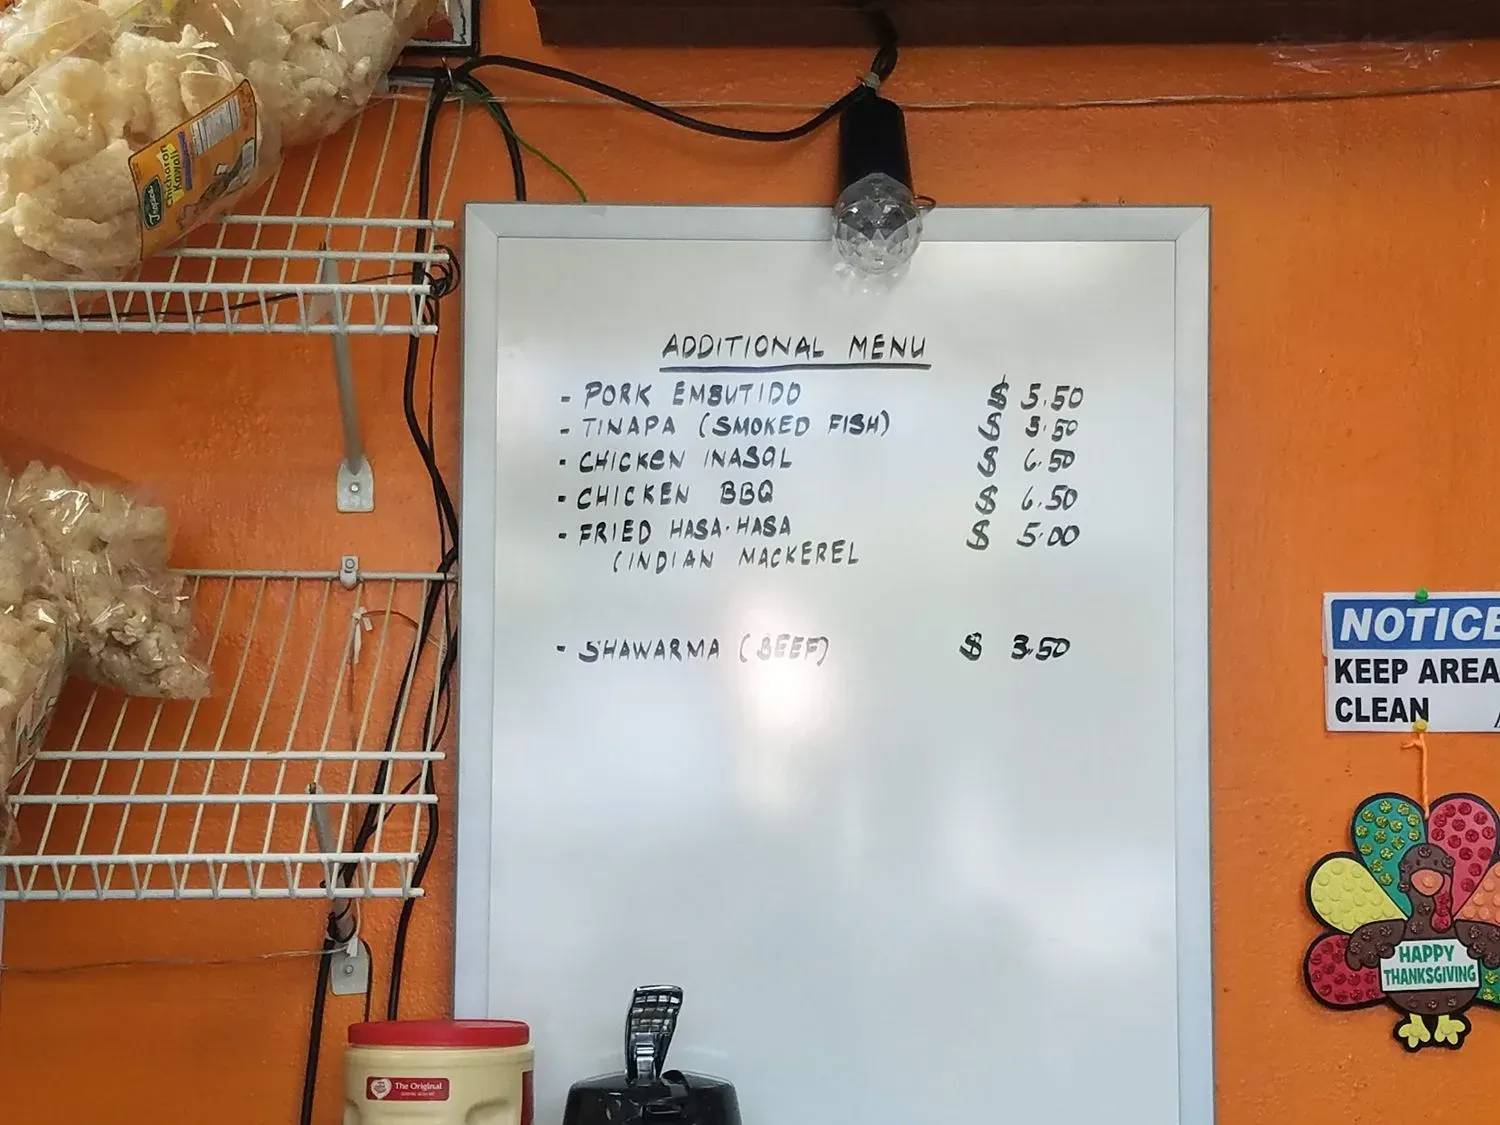 Tropical
Chicharon
Kawali
ADDITIONAL MENU
- PORK EMBUTIDO $ 5.50
- TINAPA (SMOKED FISH) $ 3.50
- CHICKEN INASOL $ 6.50
- CHICKEN BBQ $ 6.50
- FRIED HASA-HASA $ 5.00
(INDIAN MACKEREL
- SHAWARMA (BEEF) $ 3.50
NOTICE
KEEP AREA
CLEAN
HAPPY
THANKSGIVING
The Original